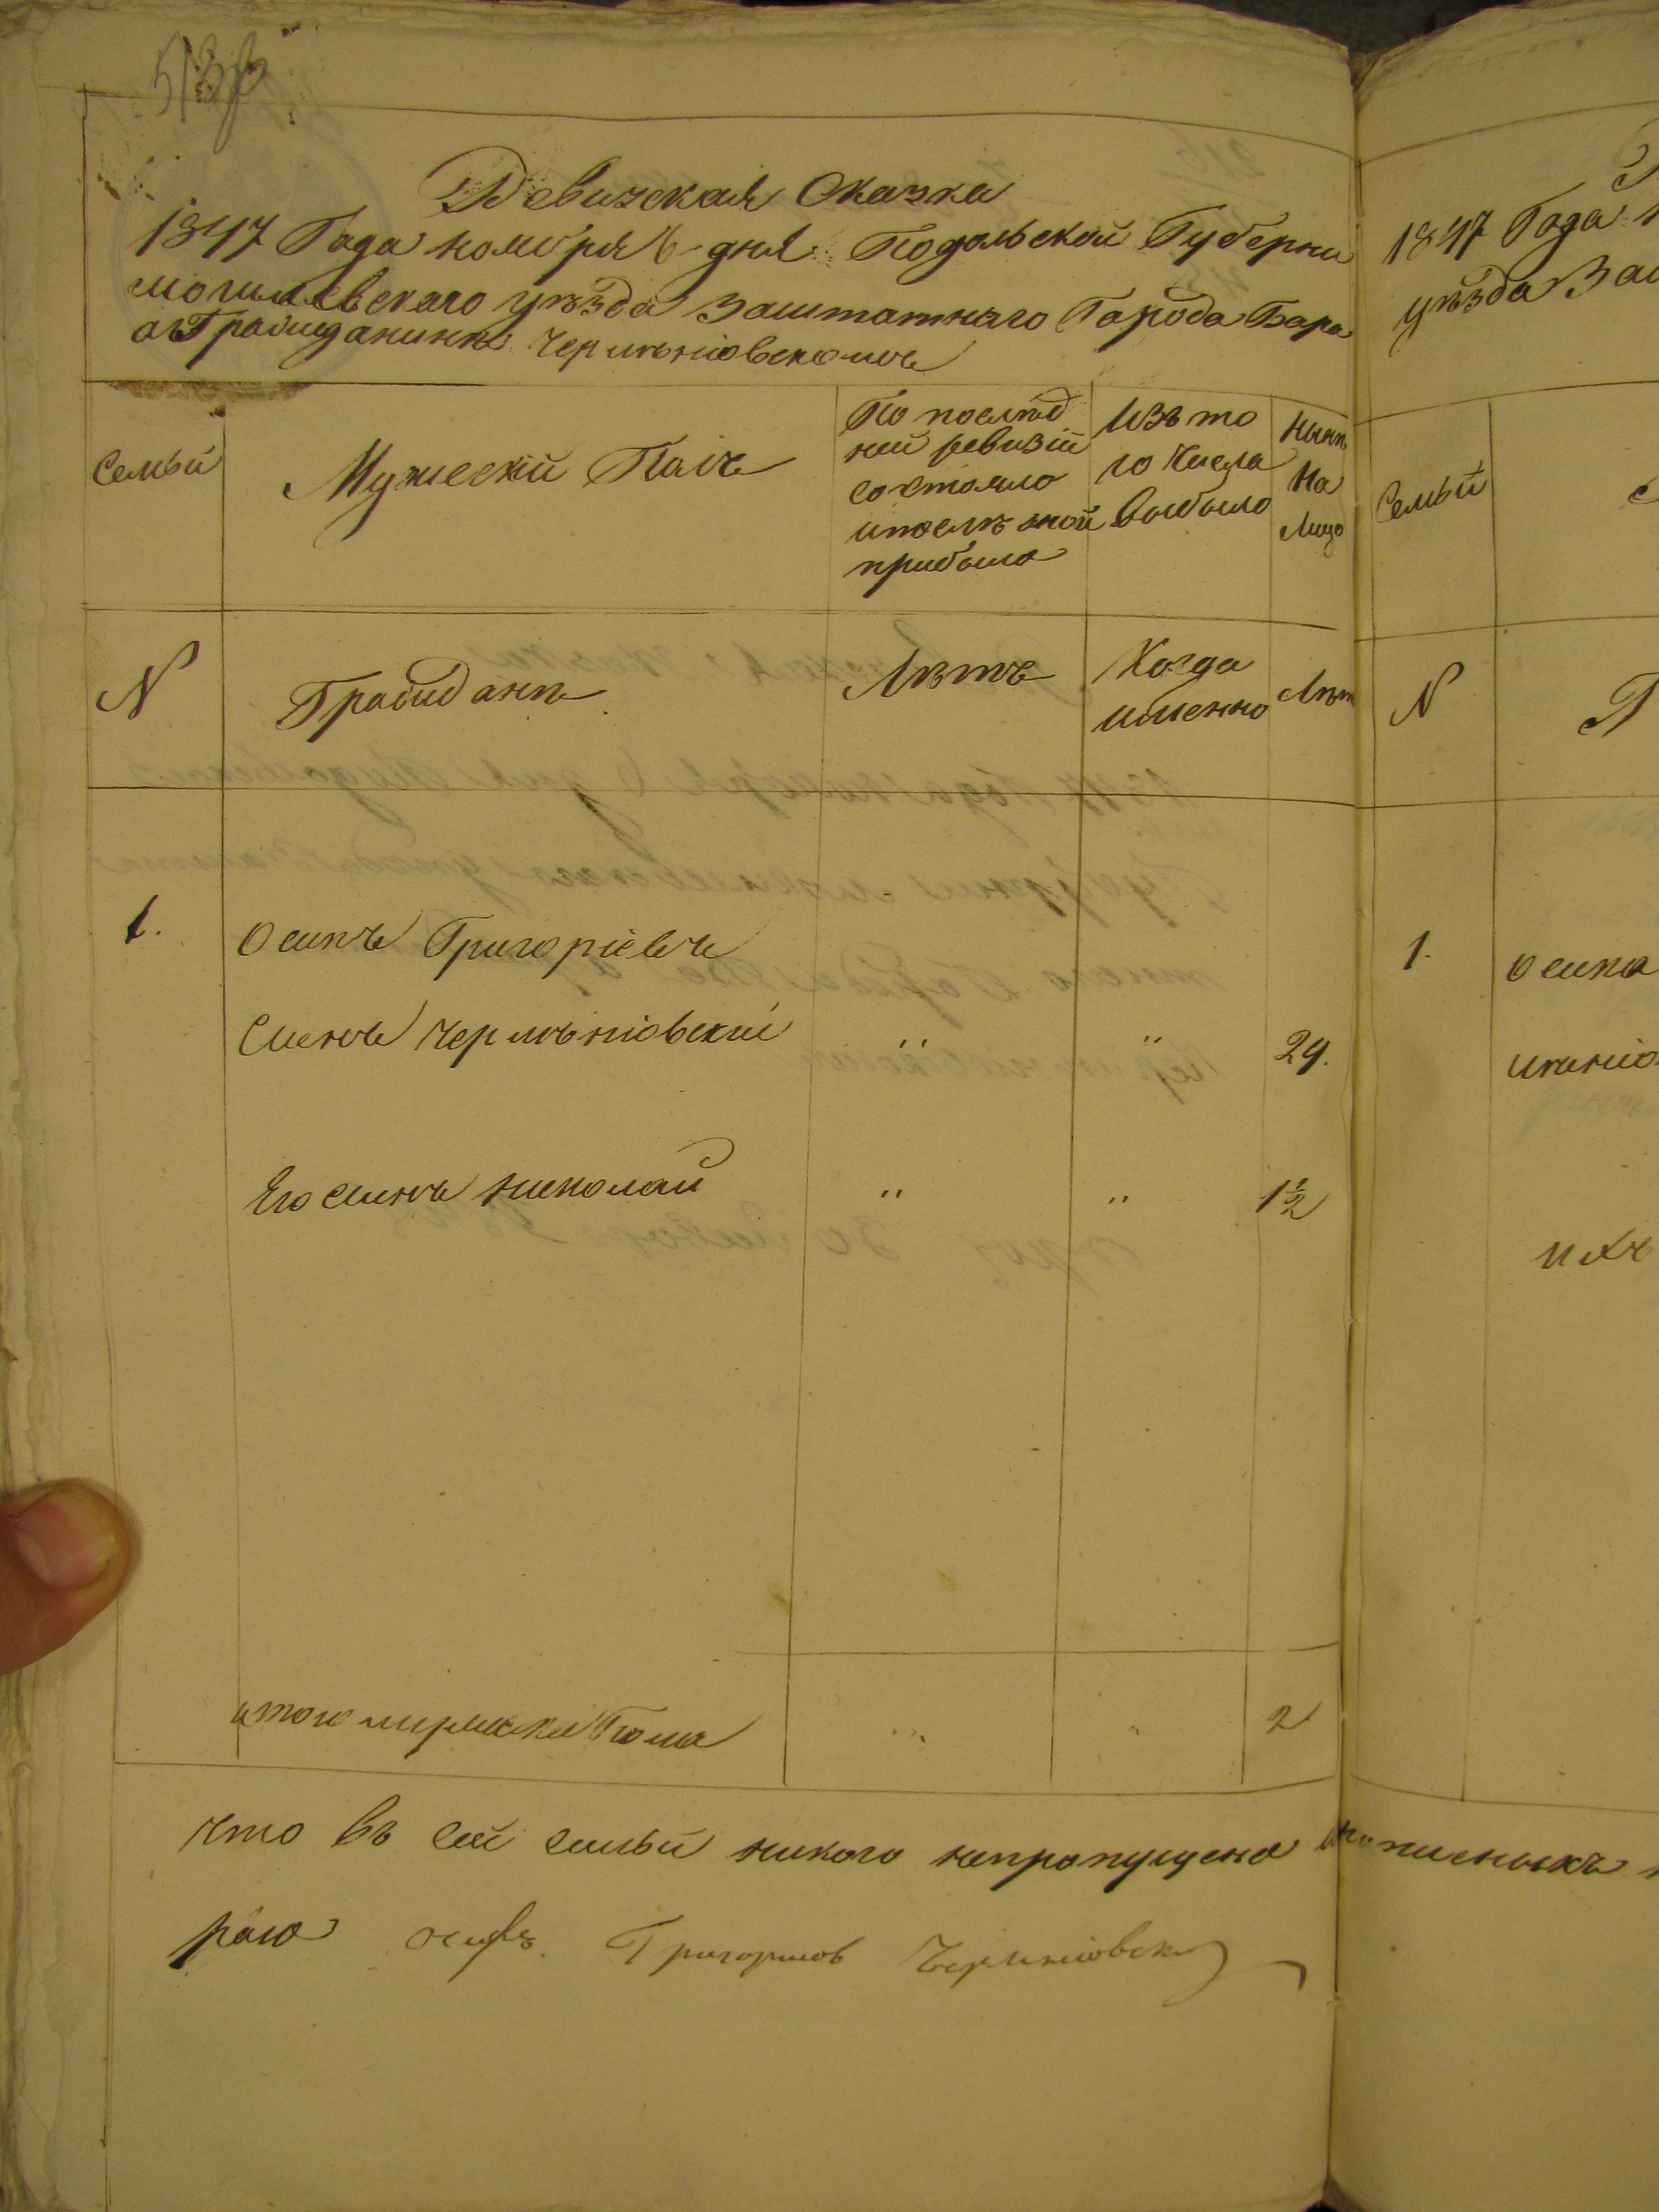 Ревизская Сказка
1847 Года ноября 6 дня Подольской Губерни
могилевскаго уѣзда Заштатнаго Города Бара
о Гражданинѣ Чермѣнювскомъ
Семьи
Мужескій Полъ
По послѣд
ней ревизіи
состояло
и послѣ оной
прибыло
Изъ то
го числа
выбыло
Нынѣ
На
Лицо
N
Граждане
Лѣтъ
Когда
именно
Лѣт
1.
Осипъ Григоріевъ
Сынъ Чермѣнювский
"
"
29.
Его сынъ николай
"
"
1½
итого мужеска Пола
"
"
2
что въ сей семьи никого непропущено
раю Осифъ Григориев Черминювски
1847 Года
уѣзда Заш
Семьи
N
1.
Осипа
ихъ